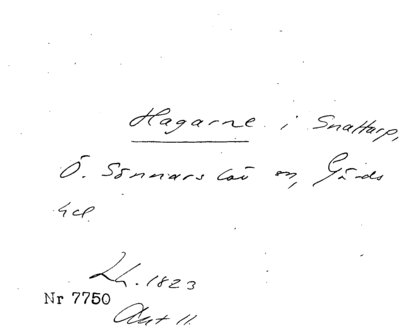 Hagarne i Snattarp,
Ö. Sönnarslöv sn, Gärds
hd.
Lh. 1823
Nr 7750
Akt 11.